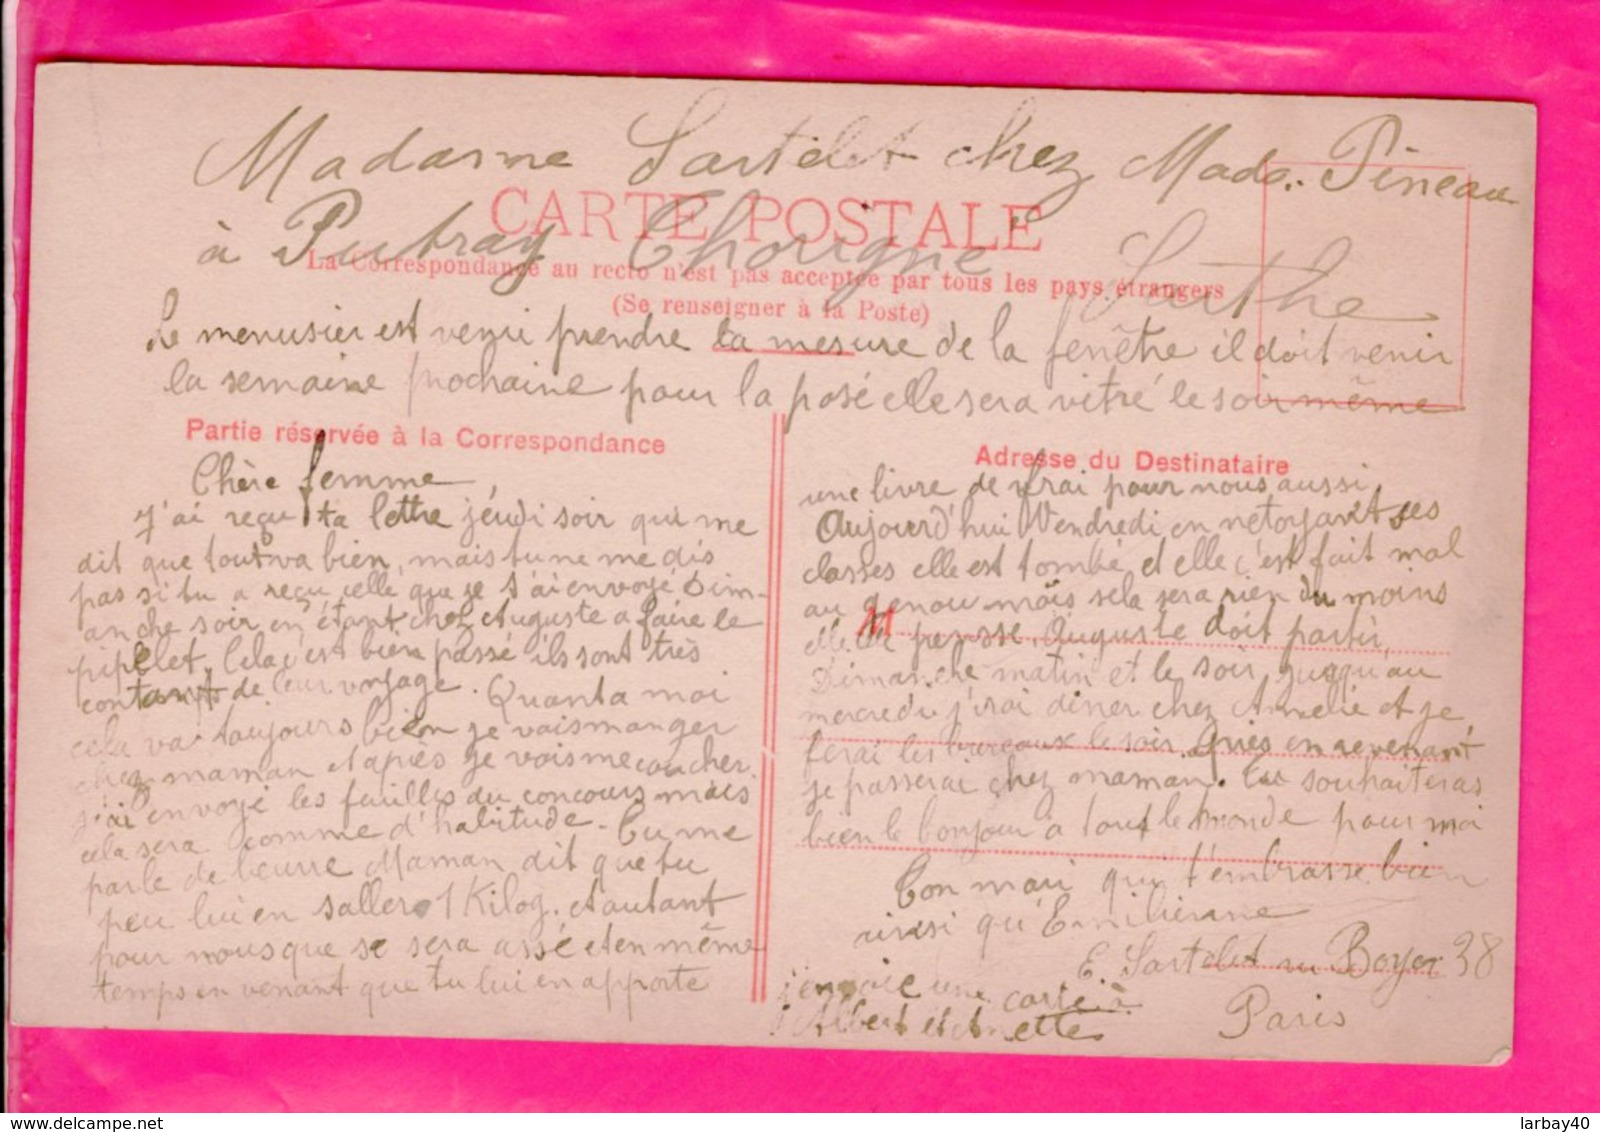 Madame Sartelet chez Made. Pineau
CARTE POSTALE
à Putray Chourgné Sarthe
La Correspondance au recto n'est pas acceptée par tous les pays étrangers
(Se renseigner à la Poste)
Le menusier est venu prendre la mesure de la fenêtre il doit venir
la semaine prochaine pour la posé elle sera vitré le soir même
Partie réservée à la Correspondance
Chère femme,
J'ai reçu ta lettre jeudi soir qui me
dit que tout va bien, mais tu ne me dis
pas si tu a reçu celle que je t'ai envoyé Dim-
anche soir en étant chez Auguste a faire le
pipelet. Cela c'est bien passé ils sont très
contant de leur voyage. Quant a moi
cela va toujours bien je vais manger
chez maman et après je vois me coucher.
j'ai envoyé les feuilles du concours mais
cela sera comme d'habitude. Tu me
parle de beurre Maman dit que tu
peu lui en saller 1 Kilog. et autant
pour nous que se sera assé et en même
temps en venant que tu lui en apporte
Adresse du Destinataire
une livre de vrai pour nous aussi
Aujourd'hui Vendredi en netoyant ses
classes elle est tombé et elle c'est fait mal
au genou mais sela sera rien du moins
M
elle le pensse. Auguste doit partir
Dimanche matin et le soir jusqu'au
mercredi j'irai diner chez Amélie et je
ferai les bureaux le soir. Puis en revenant
je passerai chez maman. Tu souhaiteras
bien le bonjour à tout le monde pour moi
Ton mari qui t'embrasse bien
ainsi qu'Emilienne
E. Sartelet ru Boyer 38
Paris
j'envoie une carte à
Albert et Anette
larbay40